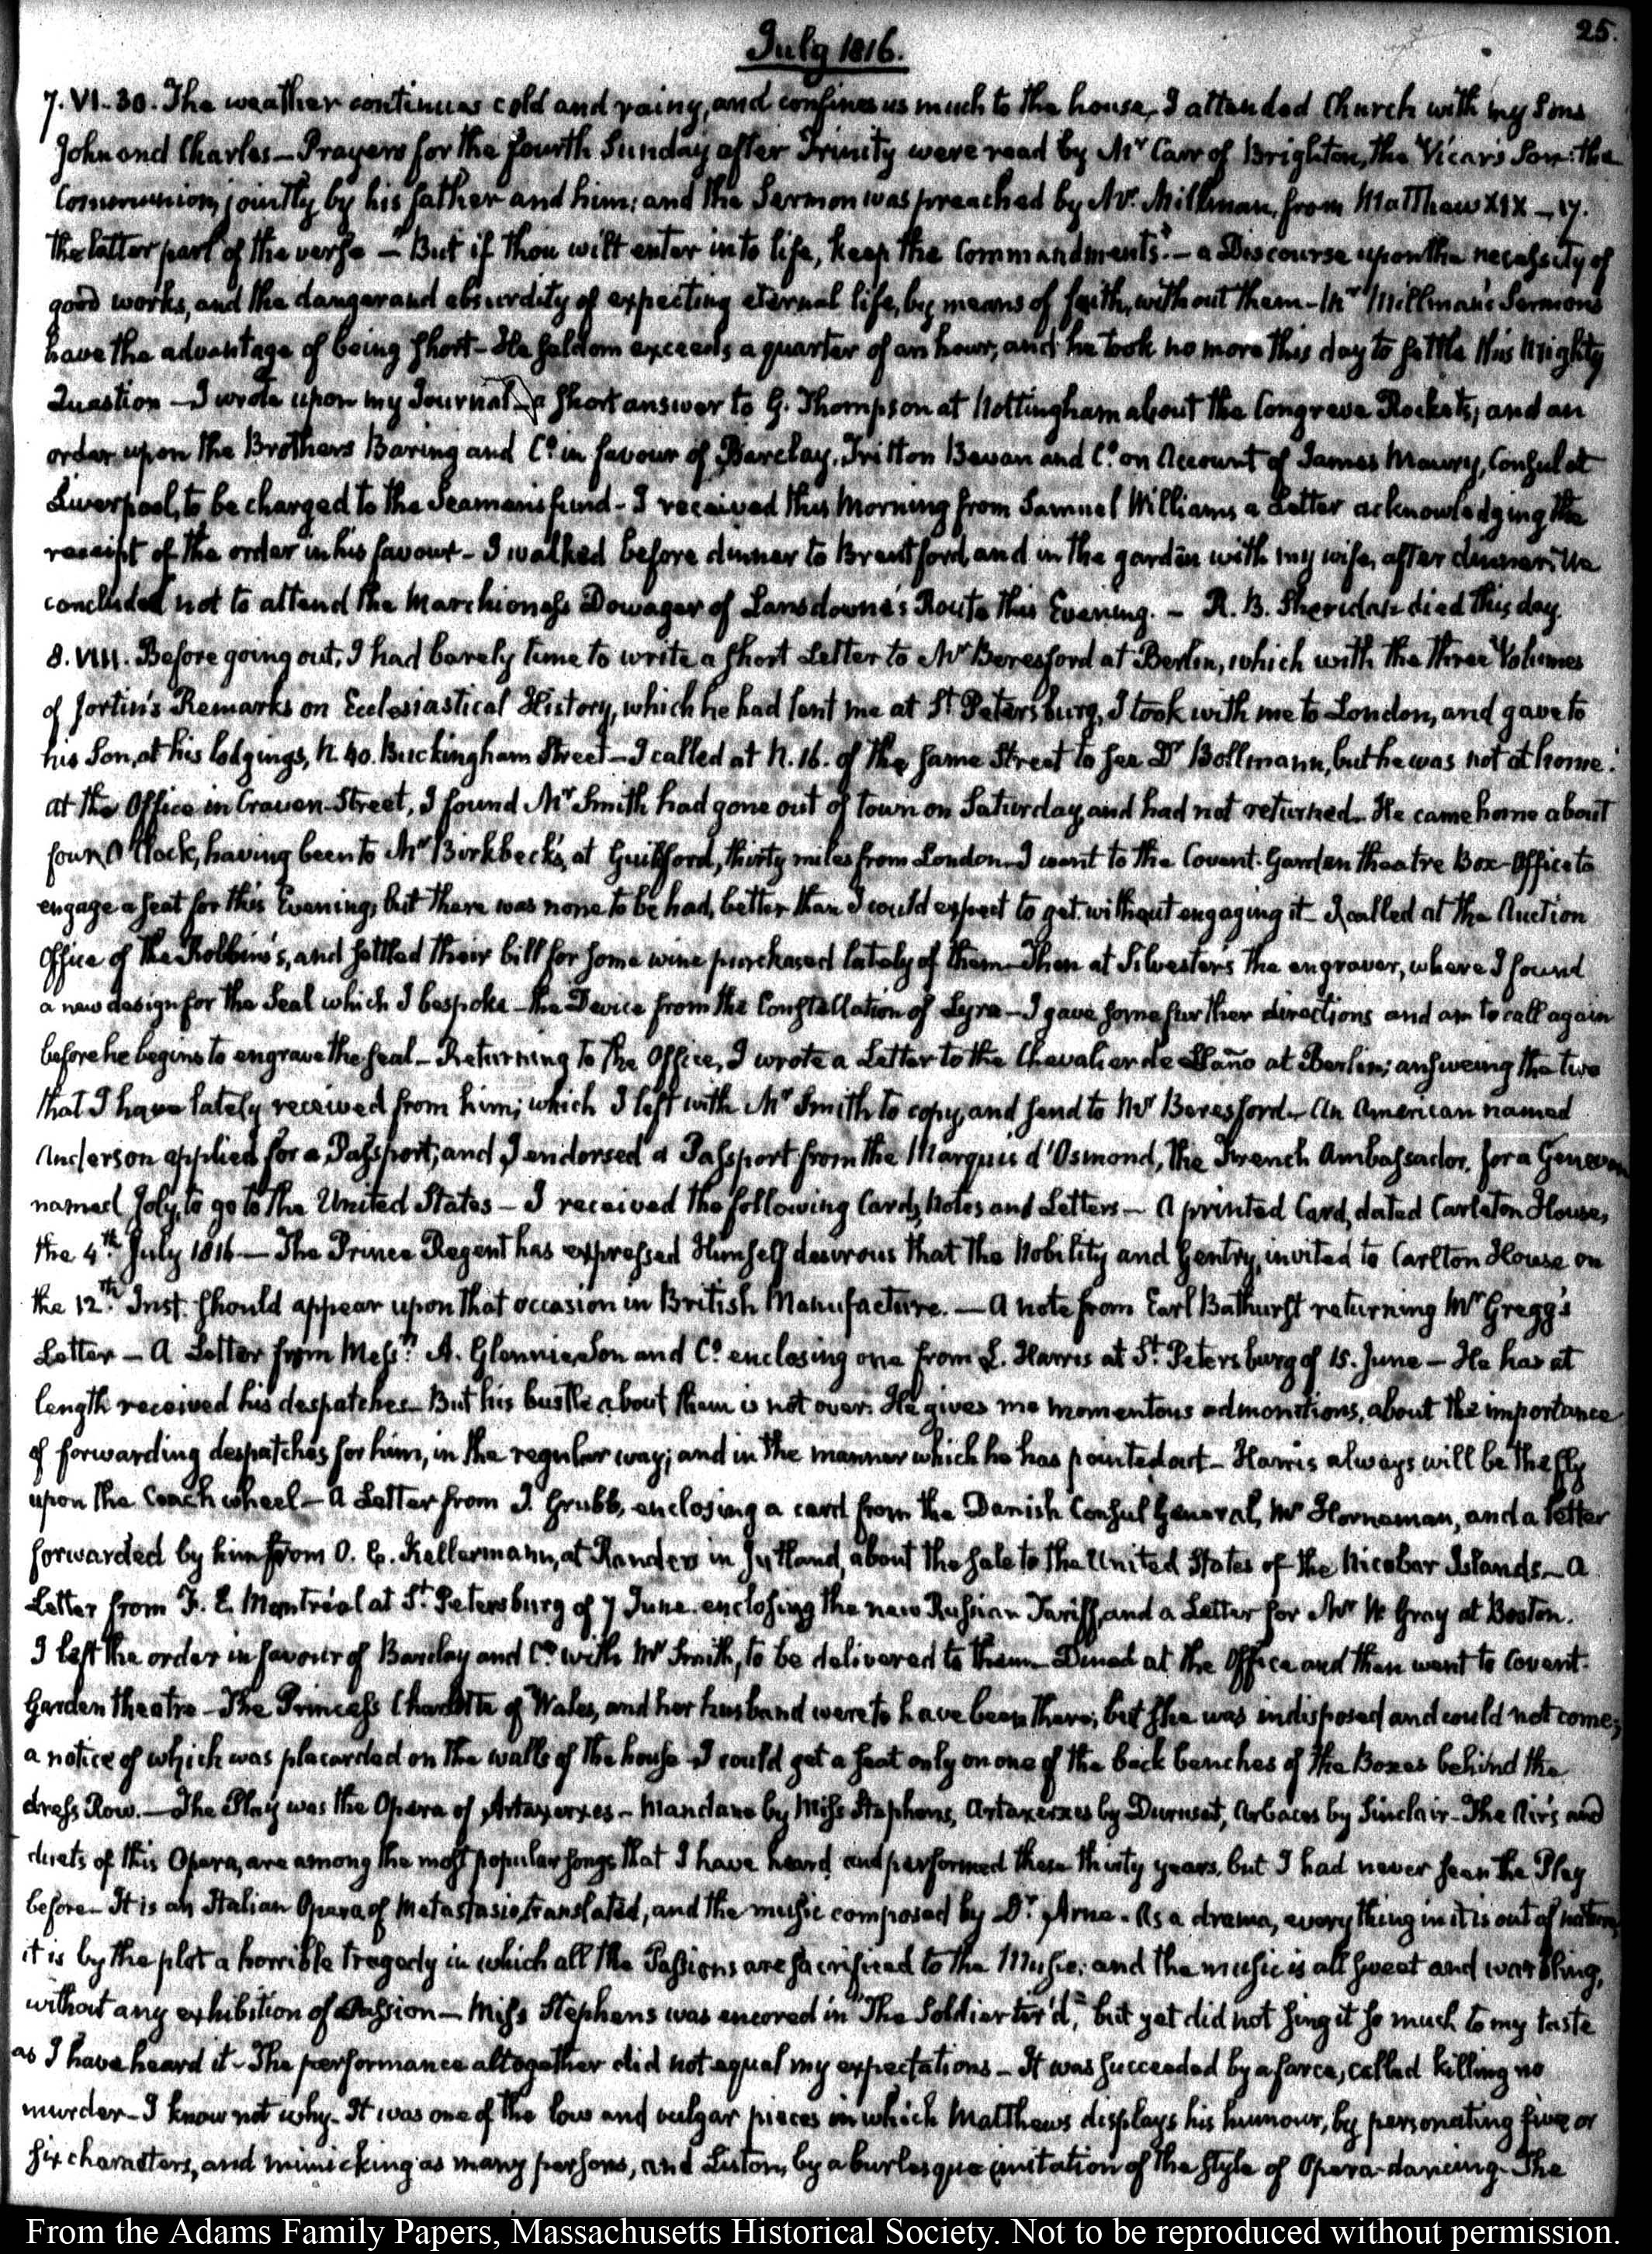 25.
July 1816.
7. VI.30. The weather continues cold and rainy, and confines us much to the house. I attended Church with my Sons
John and Charles — Prayers for the fourth Sunday after Trinity were read by Mr Carr of Brighton, the Vicar's Son: the
Communion, jointly by his father and him; and the Sermon was preached by Mr. Millman, from Matthew XIX — 17.
the latter part of the verse — "But if thou wilt enter into life, keep the Commandments." — a Discourse upon the necessity of
good works, and the danger and absurdity of expecting eternal life, by means of faith, without them — Mr Millman's Sermons
have the advantage of being short — He seldom exceeds a quarter of an hour, and he took no more this day to settle this mighty
Question — I wrote upon my Journal — a short answer to G. Thompson at Nottingham about the Congreve Rockets; and an
order upon the Brothers Baring and Co. in favour of Barclay, Tritton Bevan and Co. on Account of James Maury, Consul at
Liverpool, to be charged to the Seamen's fund — I received this Morning from Samuel Williams a Letter acknowledging the
receipt of the order in his favour — I walked before dinner to Brentford, and in the garden with my wife, after dinner. We
concluded not to attend the Marchioness Dowager of Lansdowne's Route this Evening. — R. B. Sheridan died this day.
8. VIII. Before going out, I had barely time to write a short Letter to Mr Beresford at Berlin, which with the three Volumes
of Jortin's Remarks on Ecclesiastical History, which he had lent me at St Petersburg, I took with me to London, and gave to
his Son, at his lodgings, N. 40. Buckingham Street — I called at N. 16. of the same Street to see Dr Bollmann, but he was not at home.
at the Office in Craven-Street, I found Mr Smith had gone out of town on Saturday, and had not returned. He came home about
four O'Clock, having been to Mr Birkbeck's, at Guilford, thirty miles from London. I went to the Covent-Garden theatre Box-Office to
engage a seat for this Evening, but there was none to be had, better than I could expect to get without engaging it — I called at the Auction
Office of the Robbins's, and settled their bill for some wine purchased lately of them — Then at Silvester's the engraver, where I found
a new design for the Seal which I bespoke — the Device from the Constellation of Lyra — I gave some further directions and am to call again
before he begins to engrave the seal — Returning to the Office, I wrote a Letter to the Chevalier de Llaño at Berlin; answering the two
that I have lately received from him; which I left with Mr Smith to copy, and send to Mr Beresford. An American named
Anderson applied for a Passport; and I endorsed a Passport from the Marquis d'Osmond, the French Ambassador, for a Genevan
named Joly, to go to the United States — I received the following Cards, Notes and Letters — A printed Card, dated Carleton House,
the 4th July 1816 — The Prince Regent has expressed Himself desirous that the Nobility and Gentry, invited to Carlton House on
the 12th Inst. should appear upon that occasion in British Manufacture. — A note from Earl Bathurst returning Mr Gregg's
Letter — A Letter from Messrs A. Glennie, Son and Co. enclosing one from L. Harris at St. Petersburg of 15. June — He has at
length received his despatches — But his bustle about them is not over. He gives me momentous admonitions, about the importance
of forwarding despatches for him, in the regular way; and in the manner which he has pointed out — Harris always will be the fly
upon the Coach wheel — A Letter from J. Grubb, enclosing a card from the Danish Consul General, Mr Horneman, and a letter
forwarded by him from O. C. Kellermann, at Randers in Jutland, about the sale to the United States of the Nicobar Islands — A
Letter from F. E. Montréal at St. Petersburg of 7 June. enclosing the new Russian Tariff, and a Letter for Mr W. Gray at Boston.
I left the order in favour of Barclay and Co. with Mr Smith, to be delivered to them — Dined at the Office and then went to Covent-
Garden theatre — The Princess Charlotte of Wales, and her husband were to have been there, but she was indisposed and could not come;
a notice of which was placarded on the walls of the house — I could get a seat only on one of the back benches of the Boxes behind the
dress Row. — The Play was the Opera of Artaxerxes — Mandane by Miss Stephens, Artaxerxes by Duruset, Arbaces by Sinclair — The Airs and
duets of this Opera, are among the most popular songs that I have heard and performed these thirty years, but I had never seen the Play
before — It is an Italian Opera of Metastasio, translated, and the music composed by Dr. Arne. As a drama, every thing in it is out of nature,
it is by the plot a horrible tragedy in which all the Passions are sacrificed to the Music; and the music is all sweet and warbling,
without any exhibition of Passion — Miss Stephens was encored in "The Soldier tir'd," but yet did not sing it so much to my taste
as I have heard it — The performance altogether did not equal my expectations — It was succeeded by a farce, called Killing no
murder — I know not why. It was one of the low and vulgar pieces in which Matthews displays his humour, by personating five or
six characters, and mimicking as many persons, and Liston, by a burlesque imitation of the style of Opera-dancing. The
From the Adams Family Papers, Massachusetts Historical Society. Not to be reproduced without permission.